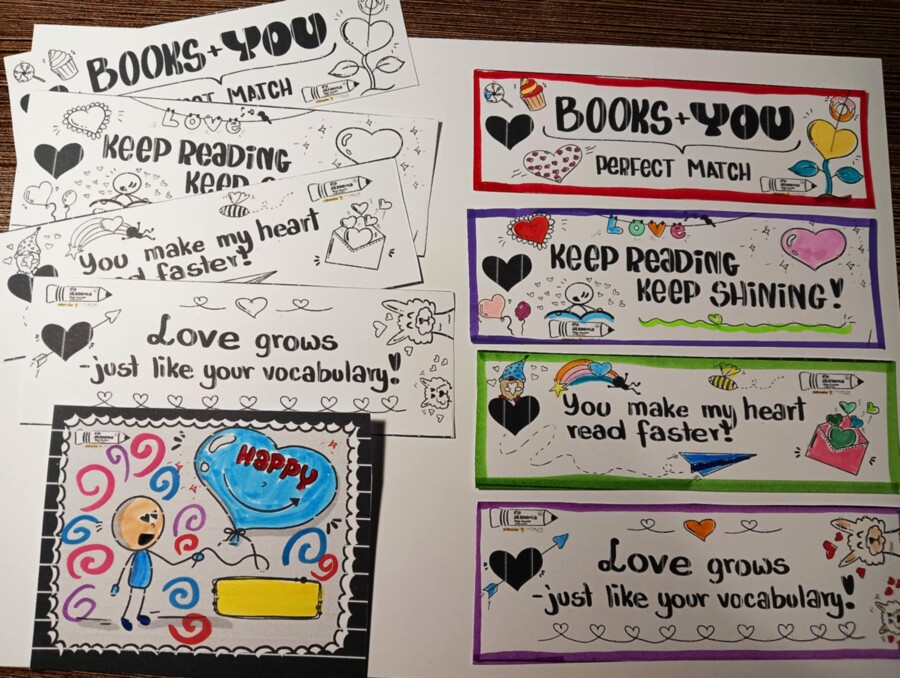 BOOKS + YOU
CT MATCH
LOVE
KEEP READING
KEEP
You make my heart
read faster!
Love grows
-just like your vocabulary!
HAPPY
BOOKS + YOU
PERFECT MATCH
LOVE
KEEP READING
KEEP SHINING!
You make my heart
read faster!
Love grows
-just like your vocabulary!